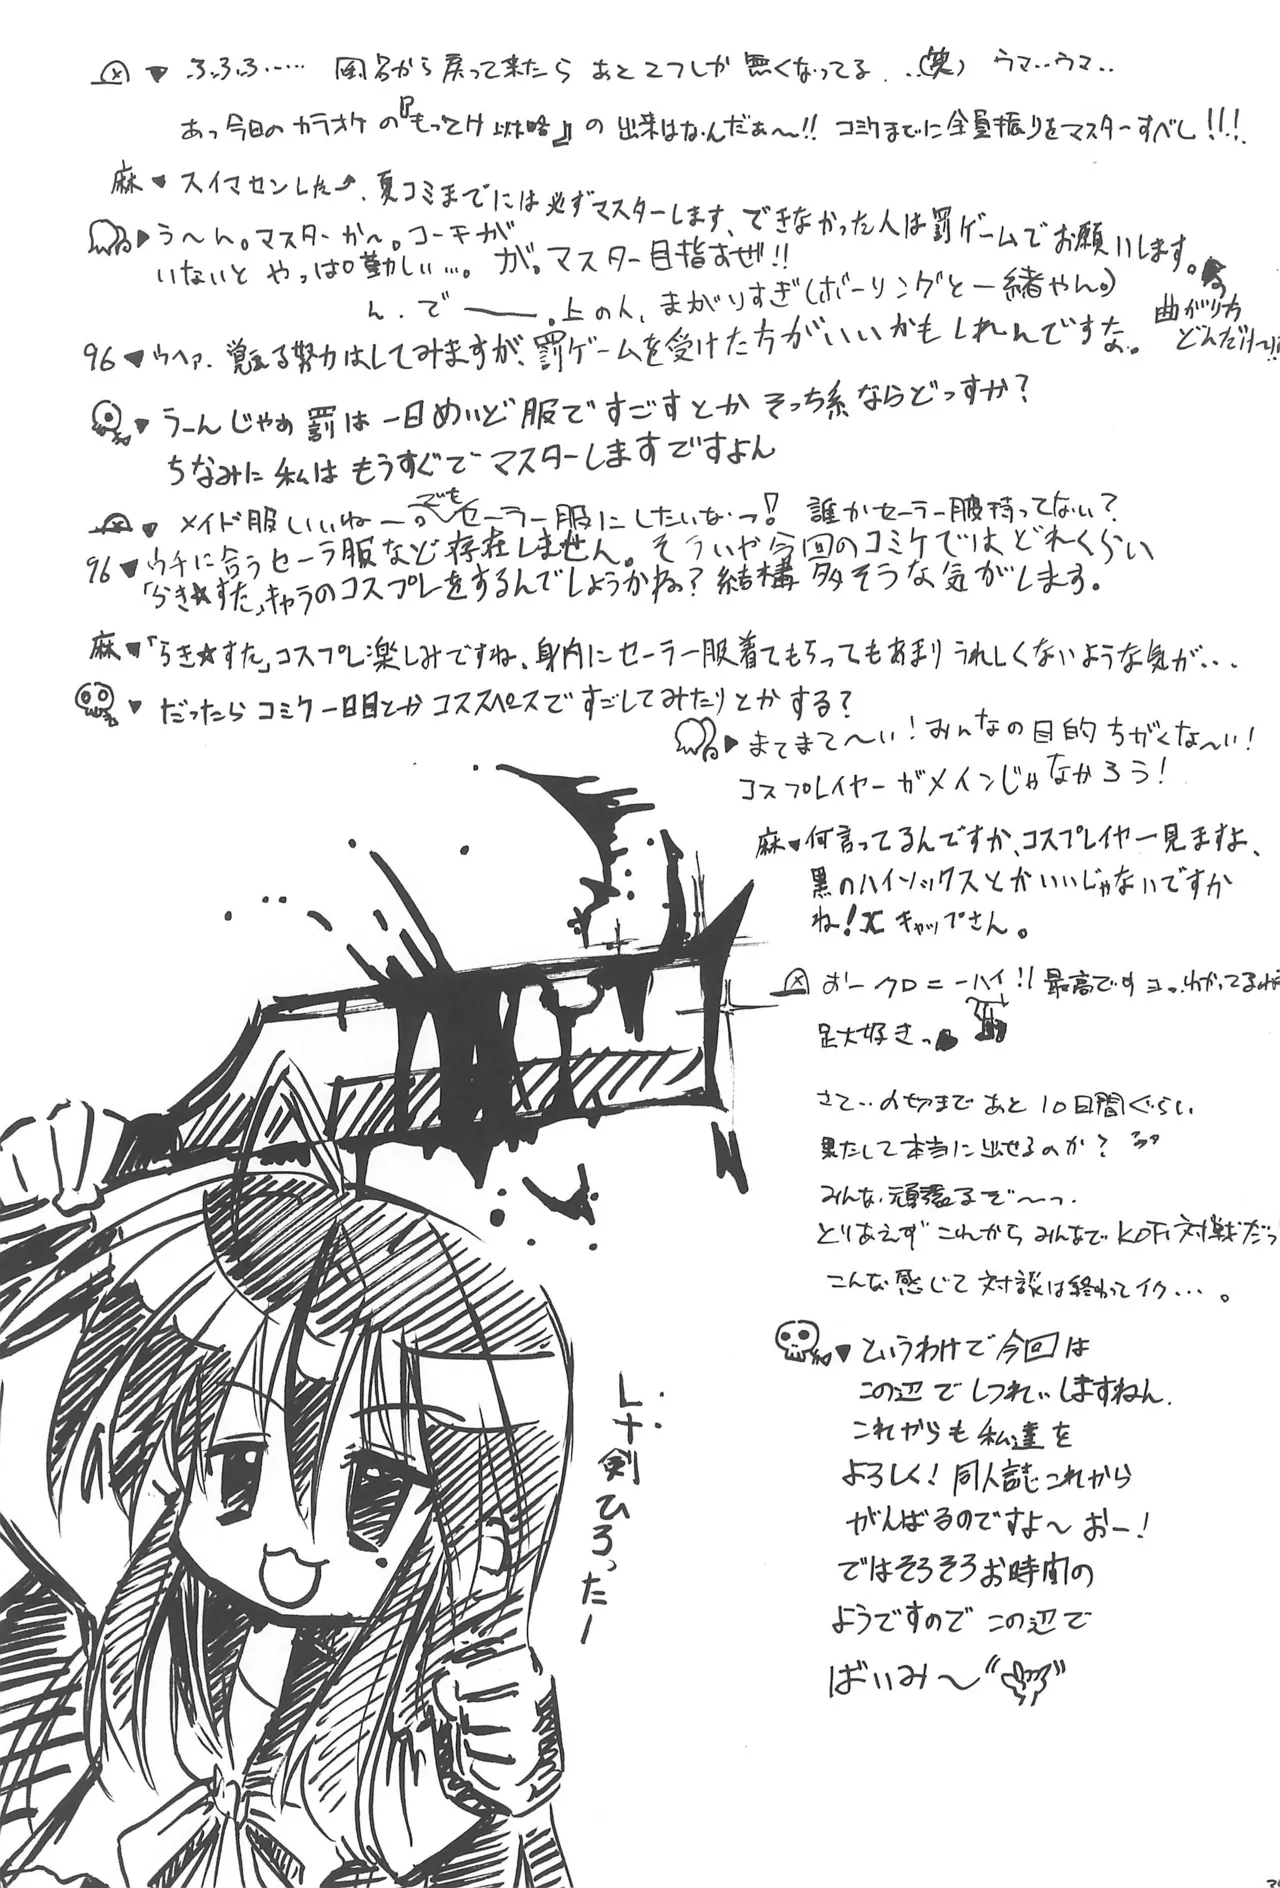 ふ、ふ、ふ…… から戻って来たら あと2つしか 無くなってる...(笑) ウマ‥ウマ‥
あっ今日のカラオケの『もってけ 以下略』の 出来はなんだぁ〜!! コミケまでに全員振りをマスターすべし!!!
麻▼スイマセンした、夏コミまでには必ずマスターします、できなかった人は罰ゲームでお願いします。
▶う〜ん。マスターか〜。コーチが
いないと やっぱ…。が。マスター目指すぜ!!
ん、で ――。上の人、まがりすぎ(ボーリングと一緒やん。)
曲がり方
どんだけ〜!!
96▼ウヘァ. 覚える努力はしてみますが、罰ゲームを受けた方がいいかもしれんですな。
▼うーんじゃぁ罰は一日めいど服ですごすとか そっち系ならどっすか?
ちなみに私はもうすぐでマスターしますですよん
▼メイド服 いいねー。でもセーラー服にしたいなっ! 誰かセーラー服持ってない?
96▼ウチに合うセーラ服など存在しません。そういや今回のコミケではどれくらい
「らき☆すた」キャラのコスプレをするんでしょうかね?結構多そうな気がします。
麻▼「らき☆すた」コスプレ楽しみですね、身内にセーラー服着てもらってもあまりうれしくないような気が...
▼だったらコミケ一日目とかコススペースですごしてみたりとかする?
▶まてまて〜い!みんなの目的ちがくな〜い!
コスプレイヤーがメインじゃなかろう!
麻▼何言ってるんですか、コスプレイヤー見ますよ、
黒のハイソックスとかいいじゃないですか
ね!Xキャップさん。
おークロニーハイ!!最高ですヨっ、わかってるね
足大好きっ
さて‥〆切まであと10日間ぐらい
果たして本当に出せるのか?
みんな頑張るぞ〜っ
とりあえず これから みんなでKOF対戦だっ
こんな感じで対談は終わってイク…。
▼というわけで今回は
この辺でしつれいしますねん.
これからも私達を
よろしく!同人誌これから
がんばるのですよ〜おー!
ではそろそろお時間の
ようですのでこの辺で
ばいみ〜"
剣ひろったー